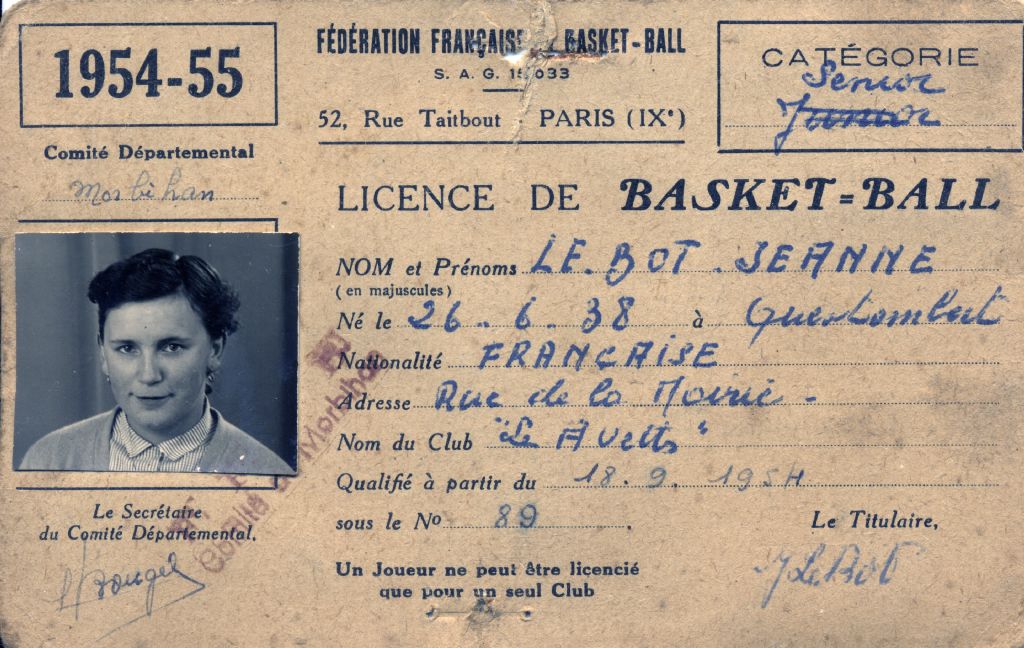 1954-55
Comité Départemental
Morbihan
FÉDÉRATION FRANÇAISE BASKET-BALL
S. A. G. 15 033
52, Rue Taitbout PARIS (IXe)
CATÉGORIE
Senior
Junior
LICENCE DE BASKET-BALL
NOM et Prénoms LE BOT JEANNE
(en majuscules)
Né le 26.6.38 à Questembert
Nationalité FRANÇAISE
Adresse Rue de la Mairie -
Nom du Club "Le Avetts"
Qualifié à partir du 18.9.1954
sous le No 89.
Le Secrétaire
du Comité Départemental,
Le Titulaire,
JLeBot
Un Joueur ne peut être licencié
que pour un seul Club
Comité Morbihan